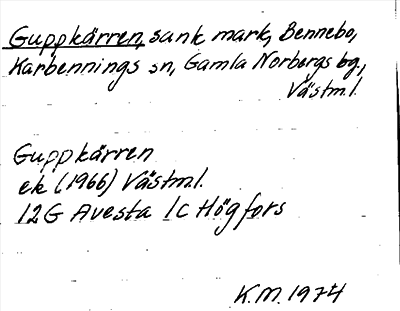 Guppkärren, sank mark, Bennebo,
Karbennings sn, Gamla Norbergs bg,
Västml.
Guppkärren
ek (1966) Västml.
12G Avesta 1c Högfors
K.M. 1974